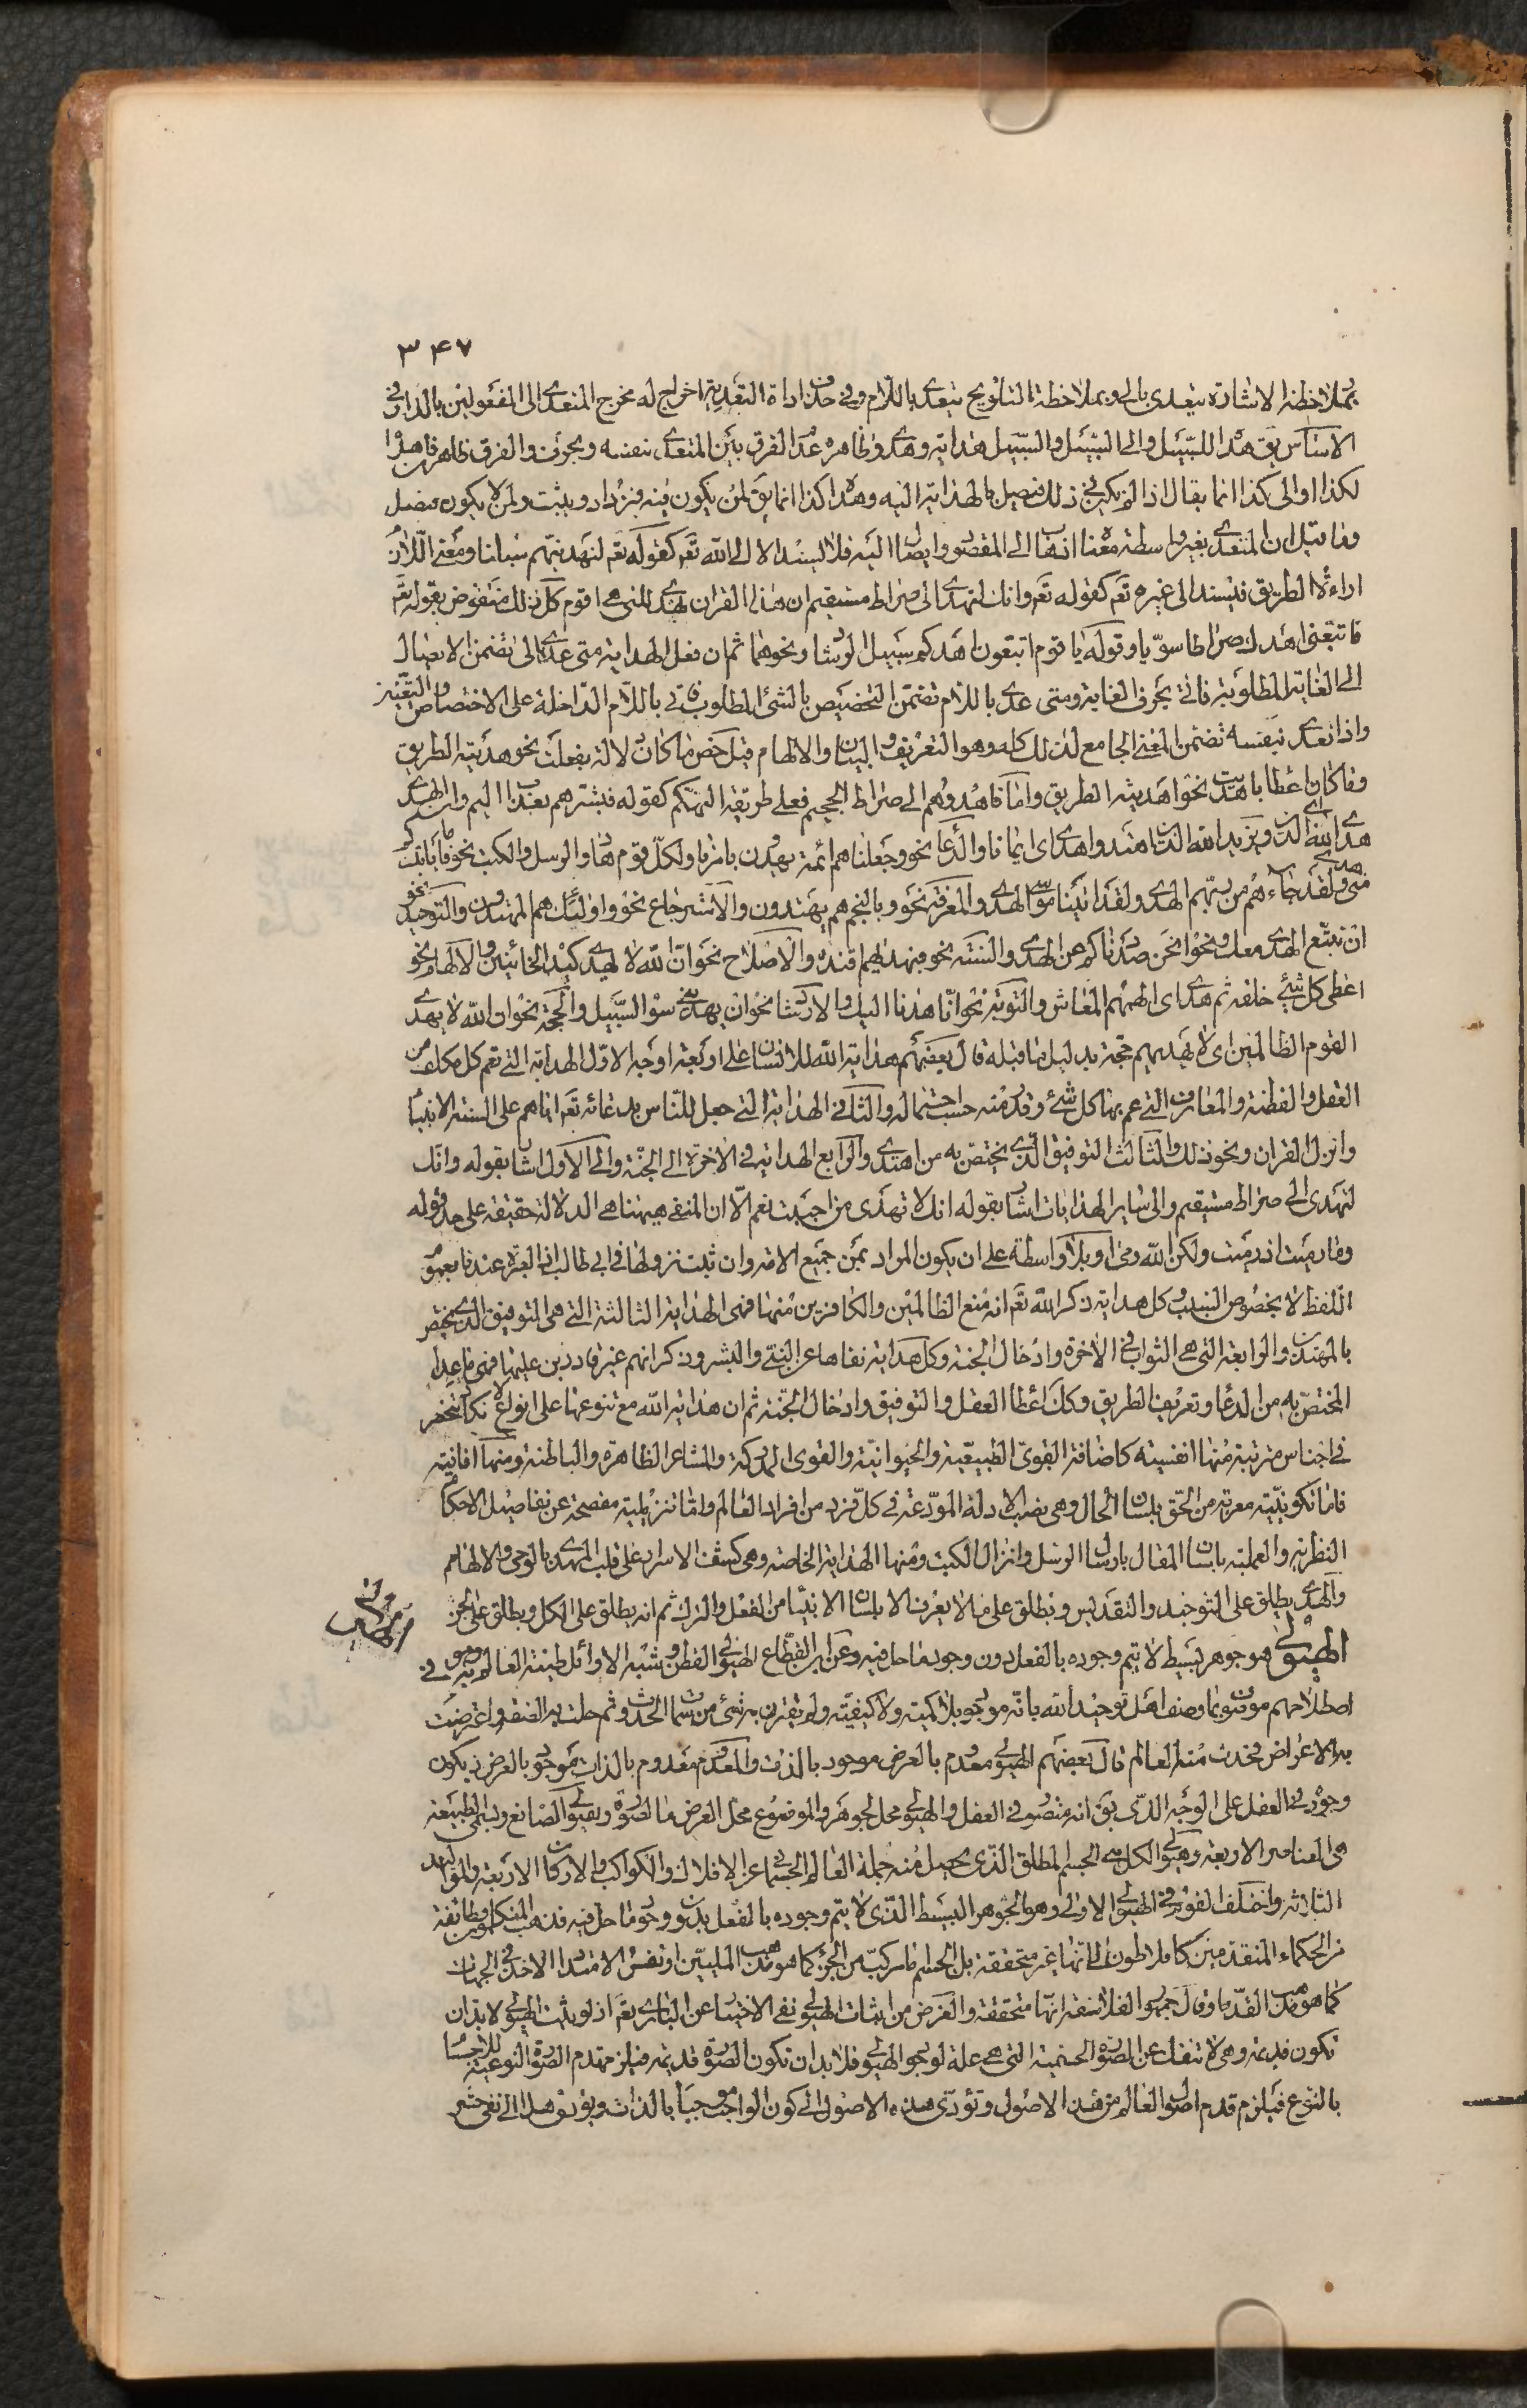 ٣٤٧
بملاحظة الاشارة يتعدى بالى وبملاحظة التلويح يتعدى باللام وفى حذف اداة التعدية اخراج له مخرج المتعدى الى المفعولين بالذات وفى
الاساس يق هداه للسبيل والى السبيل والسبيل هداية وهدى وظاهره عدم الفرق بين المتعدى بنفسه وبحرف والفرق ظاهر فان هداه
لكذا او الى كذا انما يقال اذا لم يكن فى ذلك فيصل بالهداية اليه وهداه كذا انما يق لمن يكون فيه فيزداد ويثبت ولمن لا يكون فيصل
وما قيل ان المتعدى بغير واسطة معناه اذهاب الى المقصود وايصال اليه فلا يسند الا الى الله تع كقوله تعم لنهدينهم سبلنا ومعنى اللازم
اراءة الطريق فيسند الى غيره تع كقوله تع وانك لتهدى الى صراط مستقيم ان هذا القران يهدى للتى هى اقوم كل ذلك منقوض بقوله تع
فاتبعنى اهدك صراطا سويا وقوله يا قوم اتبعون اهدكم سبيل الرشاد ونحوهما ثم ان فعل الهداية متى عدى بالى تضمن الايصال
الى الغاية المطلوبة فاتى بحرف الغاية ومتى عدى باللام تضمن التخصيص بالشئ المطلوب فاتى باللام الدالة على الاختصاص والتعيين
واذا تعدى بنفسه تضمن المعنى الجامع لذلك كله وهو التعريف والبيان والالهام قيل خص ما كان دلالة بفعلت نحو هديته الطريق
وما كان اعطاء باهديت نحو اهديته الطريق واما فاهدوهم الى صراط الجحيم فعلى طريقة التهكم كقوله فبشرهم بعذاب اليم والهدى
هدى الله الدين ويزيد الله الذين اهتدوا هدى اى ايمانا والدعاء نحو وجعلناهم ائمة يهدون بامرنا ولكل قوم هاد والرسل والكتب نحو فاما ياتينكم
منى هدى ولقد جاءهم من ربهم الهدى ولقد اتينا موسى الهدى والمعرفة نحو وبالنجم هم يهتدون والاسترجاع نحو واولئك هم المهتدون والتوحيد نحو
ان نتبع الهدى معك ونحو انحن صددناكم عن الهدى والسنة نحو فبهديهم اقتده والاصلاح نحو ان الله لا يهدى كيد الخائنين والالهام نحو
اعطى كل شئ خلقه ثم هدى اى الهمهم المعاش والتوبة نحو انا هدنا اليك والارشاد نحو ان يهدينى سواء السبيل والحجة نحو ان الله لا يهدى
القوم الظالمين اى لا يهديهم حجة بدليل ما قبله قال بعضهم هداية الله للانسان على اربعة اوجه الاول الهداية التى تعم كل مكلف من
العقل والفطنة والمعارف التى عم بها كل شئ وقدر منه حسب احتماله والثانى الهداية التى جعل للناس بدعائه تع اياهم على السنة الانبياء
وانزل القران ونحو ذلك والثالث التوفيق الذى يختص به من اهتدى والرابع الهداية فى الاخرة الى الجنة والى الاول اشار بقوله وانك
لتهدى الى صراط مستقيم والى ساير الهدايات اشار بقوله انك لا تهدى من احببت نعم الا ان المنفى ههنا هى الدلالة حقيقة على حد قوله
وما رميت اذ رميت ولكن الله رمى او بلا واسطة على ان يكون المراد بمن جميع الامة وان ثبت نزولها فى ابى طالب اذ العبرة عندنا بعموم
اللفظ لا بخصوص السبب وكل هداية ذكر الله تع انه منع الظالمين والكافرين منها فهى الهداية الثالثة التى هى التوفيق الذى يختص
بالمهتدين والرابعة التى هى الثواب فى الاخرة وادخال الجنة وكل هداية نفاها عن النبى والبشر وذكر انهم غير قادرين عليها فهى ما عدا
المختص به من الدعاء وتعريف الطريق وكذا اعطاء العقل والتوفيق وادخال الجنة ثم ان هداية الله مع تنوعها على انواع لا تكاد تنحصر
فى اجناس مترتبة منها انفسية كاضافة القوى الطبيعية والحيوانية والقوى المدركة والمشاعر الظاهرة والباطنة ومنها افاقية
فاما تكوينية معربة من الحق بلسان الحال وهى نصب الادلة المودعة فى كل فرد من افراد العالم واما تنزيلية مفصحة عن تفاصيل الاحكام
النظرية والعملية بلسان المقال بارسال الرسل وانزال الكتب ومنها الهداية الخاصة وهى كشف الاسرار على قلب المهدى بالوحى والالهام
والهدى يطلق على التوحيد والتقديس ويطلق على ما لا يعرف الا بلسان الانبياء من الفعل والترك ثم انه يطلق على الكل ويطلق على الجزء
الهيولى هو جوهر بسيط لا يتم وجوده بالفعل دون وجود ما حل فيه وعن ابن القطاع الهيولى القطن وشبه الاوائل طينة العالم به وهو فى
اصطلاحهم موصوف بما وصف اهل توحيد الله بانه موجود بلا كمية ولا كيفية ولم يقترن به شئ من سمات الحدوث ثم حلت به الصنعة واعترضت
به الاعراض فحدث منه العالم قال بعضهم الهيولى معدوم بالعرض موجود بالذات والمعدوم معدوم بالذات موجود بالعرض اذ يكون
وجوده فى العقل على الوجه الذى يق انه متصور فى العقل والهيولى محل لجوهر والموضوع محل العرض ما لصورة وهيولى الصانع ويسمى الطبيعة
هى العناصر الاربعة وهيولى الكل هى الجسم المطلق الذى يحصل منه جملة العالم الجسمانى اعنى الافلاك والكواكب والاركان الاربعة والمواليد
الثلاثة واختلف القوم فى الهيولى الاولى وهو الجوهر البسيط الذى لا يتم وجوده بالفعل بدون وجود ما حل فيه فذهب المتكلمون وطائفة
من الحكماء المتقدمين كافلاطون الى انها غير متحققة بل الجسم اما مركب من الجزء كما هو مذهب المليين او نفس الامتداد الاخذ فى الجهات
كما هو مذهب القدماء وقال جمهور الفلاسفة انها متحققة والغرض من اثبات الهيولى نفى الاختيار عن البارى تع اذ لو ثبت الهيولى لا بد ان
تكون قديمة وهى لا تنفك عن الصورة الجسمية التى هى علة لوجود الهيولى فلا بد ان تكون الصورة قديمة فيلزم قدم الصورة النوعية للاجسام
بالنوع فيلزم قدم اصول العالم من هذه الاصول وتؤدى هذه الاصول الى كون الواجب موجبا بالذات ويؤدى هذا الى نفى حشر